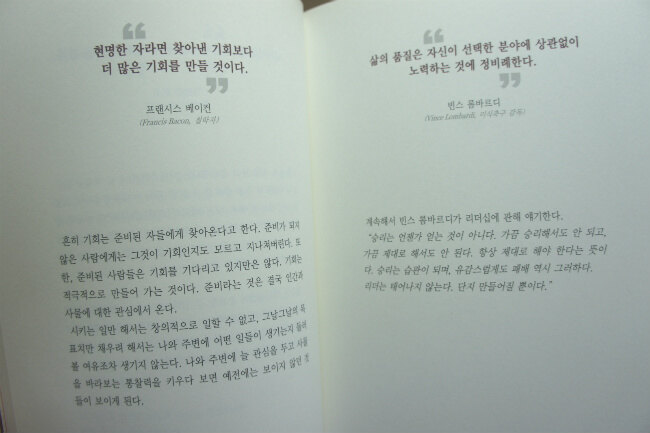 “
현명한 자라면 찾아낸 기회보다
더 많은 기회를 만들 것이다.
”
프랜시스 베이컨
(Francis Bacon, 철학자)
흔히 기회는 준비된 자들에게 찾아온다고 한다. 준비가 되지
않은 사람에게는 그것이 기회인지도 모르고 지나쳐버린다. 또
한, 준비된 사람들은 기회를 기다리고 있지만은 않다. 기회는
적극적으로 만들어 가는 것이다. 준비라는 것은 결국 인간과
사물에 대한 관심에서 온다.
시키는 일만 해서는 창의적으로 일할 수 없고, 그날그날의 목
표치만 채우려 해서는 나와 주변에 어떤 일들이 생기는지 돌아
볼 여유조차 생기지 않는다. 나와 주변에 늘 관심을 두고 사물
을 바라보는 통찰력을 키우다 보면 예전에는 보이지 않던 것
들이 보이게 된다.
“
삶의 품질은 자신이 선택한 분야에 상관없이
노력하는 것에 정비례한다.
”
빈스 롬바르디
(Vince Lombardi, 미식축구 감독)
계속해서 빈스 롬바르디가 리더십에 관해 얘기한다.
“승리는 언젠가 얻는 것이 아니다. 가끔 승리해서도 안 되고,
가끔 제대로 해서도 안 된다. 항상 제대로 해야 한다는 뜻이
다. 승리는 습관이 되며, 유감스럽게도 패배 역시 그러하다.
리더는 태어나지 않는다. 단지 만들어질 뿐이다.”